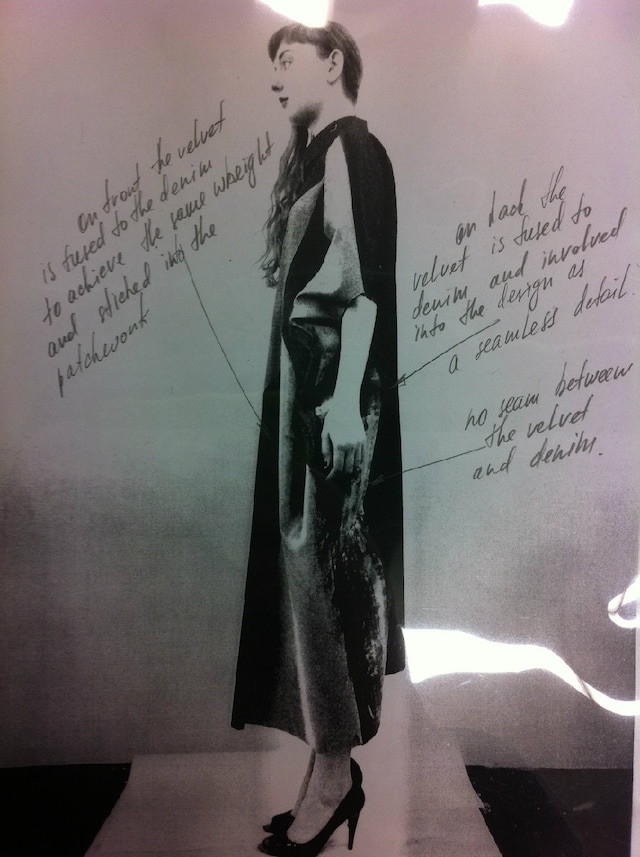 on front the velvet
is fused to the denim
to achieve the same wheight
and stiched into the
patchwork
on back the
velvet is fused to
denim and involved
into the design as
a seamless detail.
no seam between
the velvet
and denim.